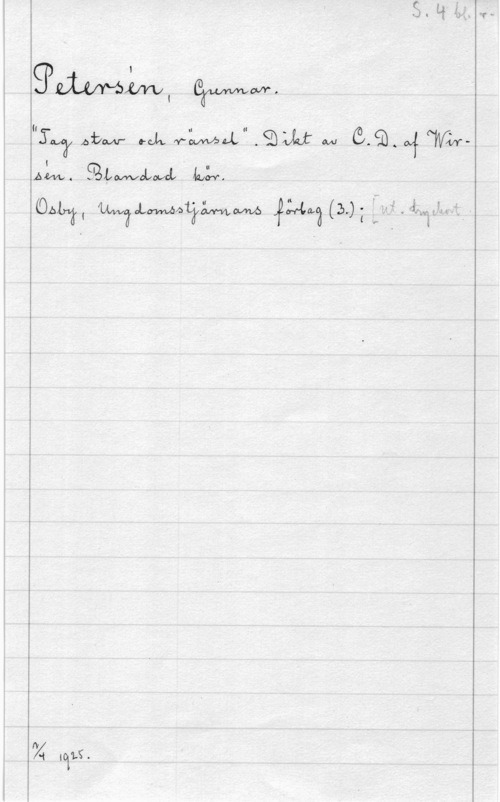 S. 4 bl. r-
Petersén, Gunnar.
"Tag stav och ränsel". Dikt av C. D. af Wir-
sén. Blandad kör.
Osby, Ungdomsstjärnans förlag (3.); [ut. tryckort
/4 1925.